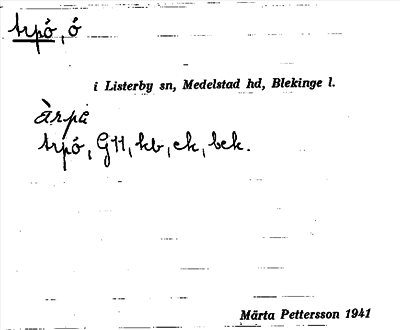 Arpö, ö
i Listerby sn, Medelstad hd, Blekinge l.
àrpå
Arpö, G11, kb, ek, bck.
Märta Pettersson 1941